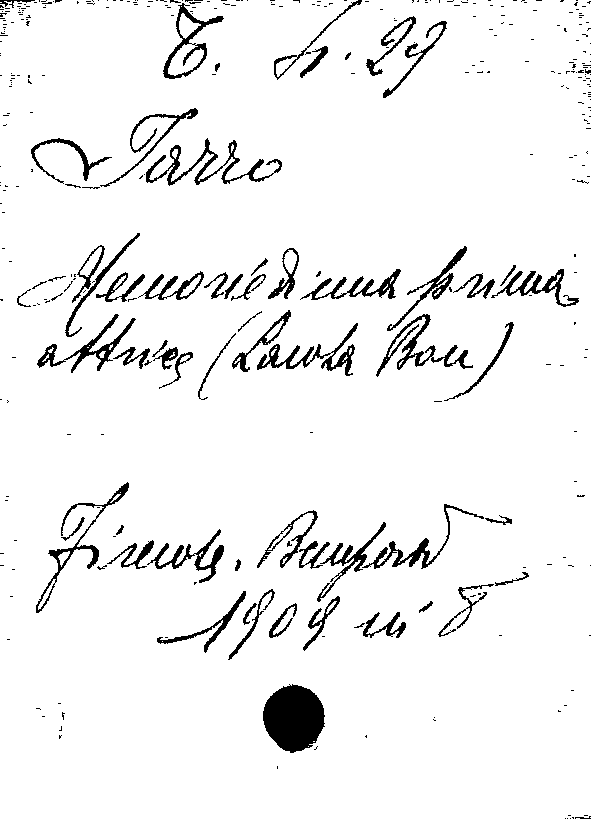 T. h. 29
Jarro
Memorie di una prima
attrice (Laura Bon)
Firenze, Bemporad
1909 in 8